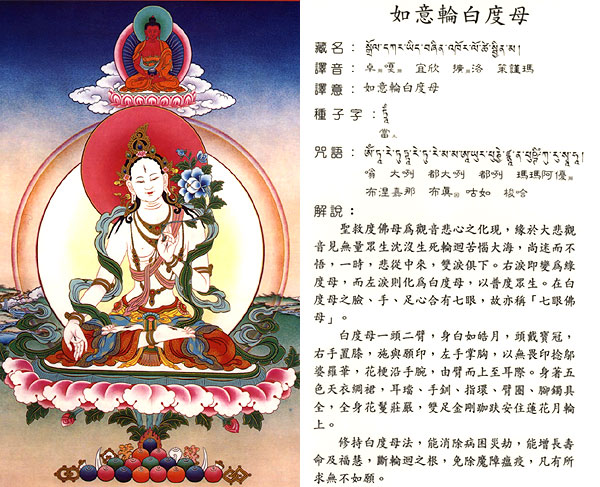 如意輪白度母
藏名：སྒྲོལ་དཀར་ཡིད་བཞིན་འཁོར་ལོ་ཚེ་སྦྱིན་མ།
譯音：卓嘎 宜欣 擴洛 萊謹瑪
譯意：如意輪白度母
種子字：ཏཱཾ
當
咒語：ཨོཾ་ཏཱ་རེ་ཏུཏྟཱ་རེ་ཏུ་རེ་མ་མ་ཨཱ་ཡུར་པུཎྱེ་ཛྙཱ་ན་པུཥྚིཾ་ཀུ་རུ་སྭཱ་ཧཱ།
嗡 大咧 都大咧 都咧 瑪瑪阿優
布湼嘉那 布真 咕如 梭哈
解說：
聖救度佛母為觀音悲心之化現，緣於大悲觀
音見無量眾生沈沒生死輪迴苦惱大海，尚迷而不
悟，一時，悲從中來，雙淚俱下。右淚即變為綠
度母，而左淚則化為白度母，以普度眾生。在白
度母之臉、手、足心合有七眼，故亦稱「七眼佛
母」。
白度母一頭二臂，身白如皓月，頭戴寶冠，
右手置膝，施與願印，左手掌胸，以無畏印捻鄔
婆羅華，花梗沿手腕，由臂而上至耳際。身著五
色天衣綢裙，耳璫、手釧、指環、臂圈、腳鐲具
全，全身花鬘莊嚴，雙足金剛跏趺安住蓮花月輪
上。
修持白度母法，能消除病困災劫，能增長壽
命及福慧，斷輪迴之根，免除魔障瘟疫，凡有所
求無不如願。